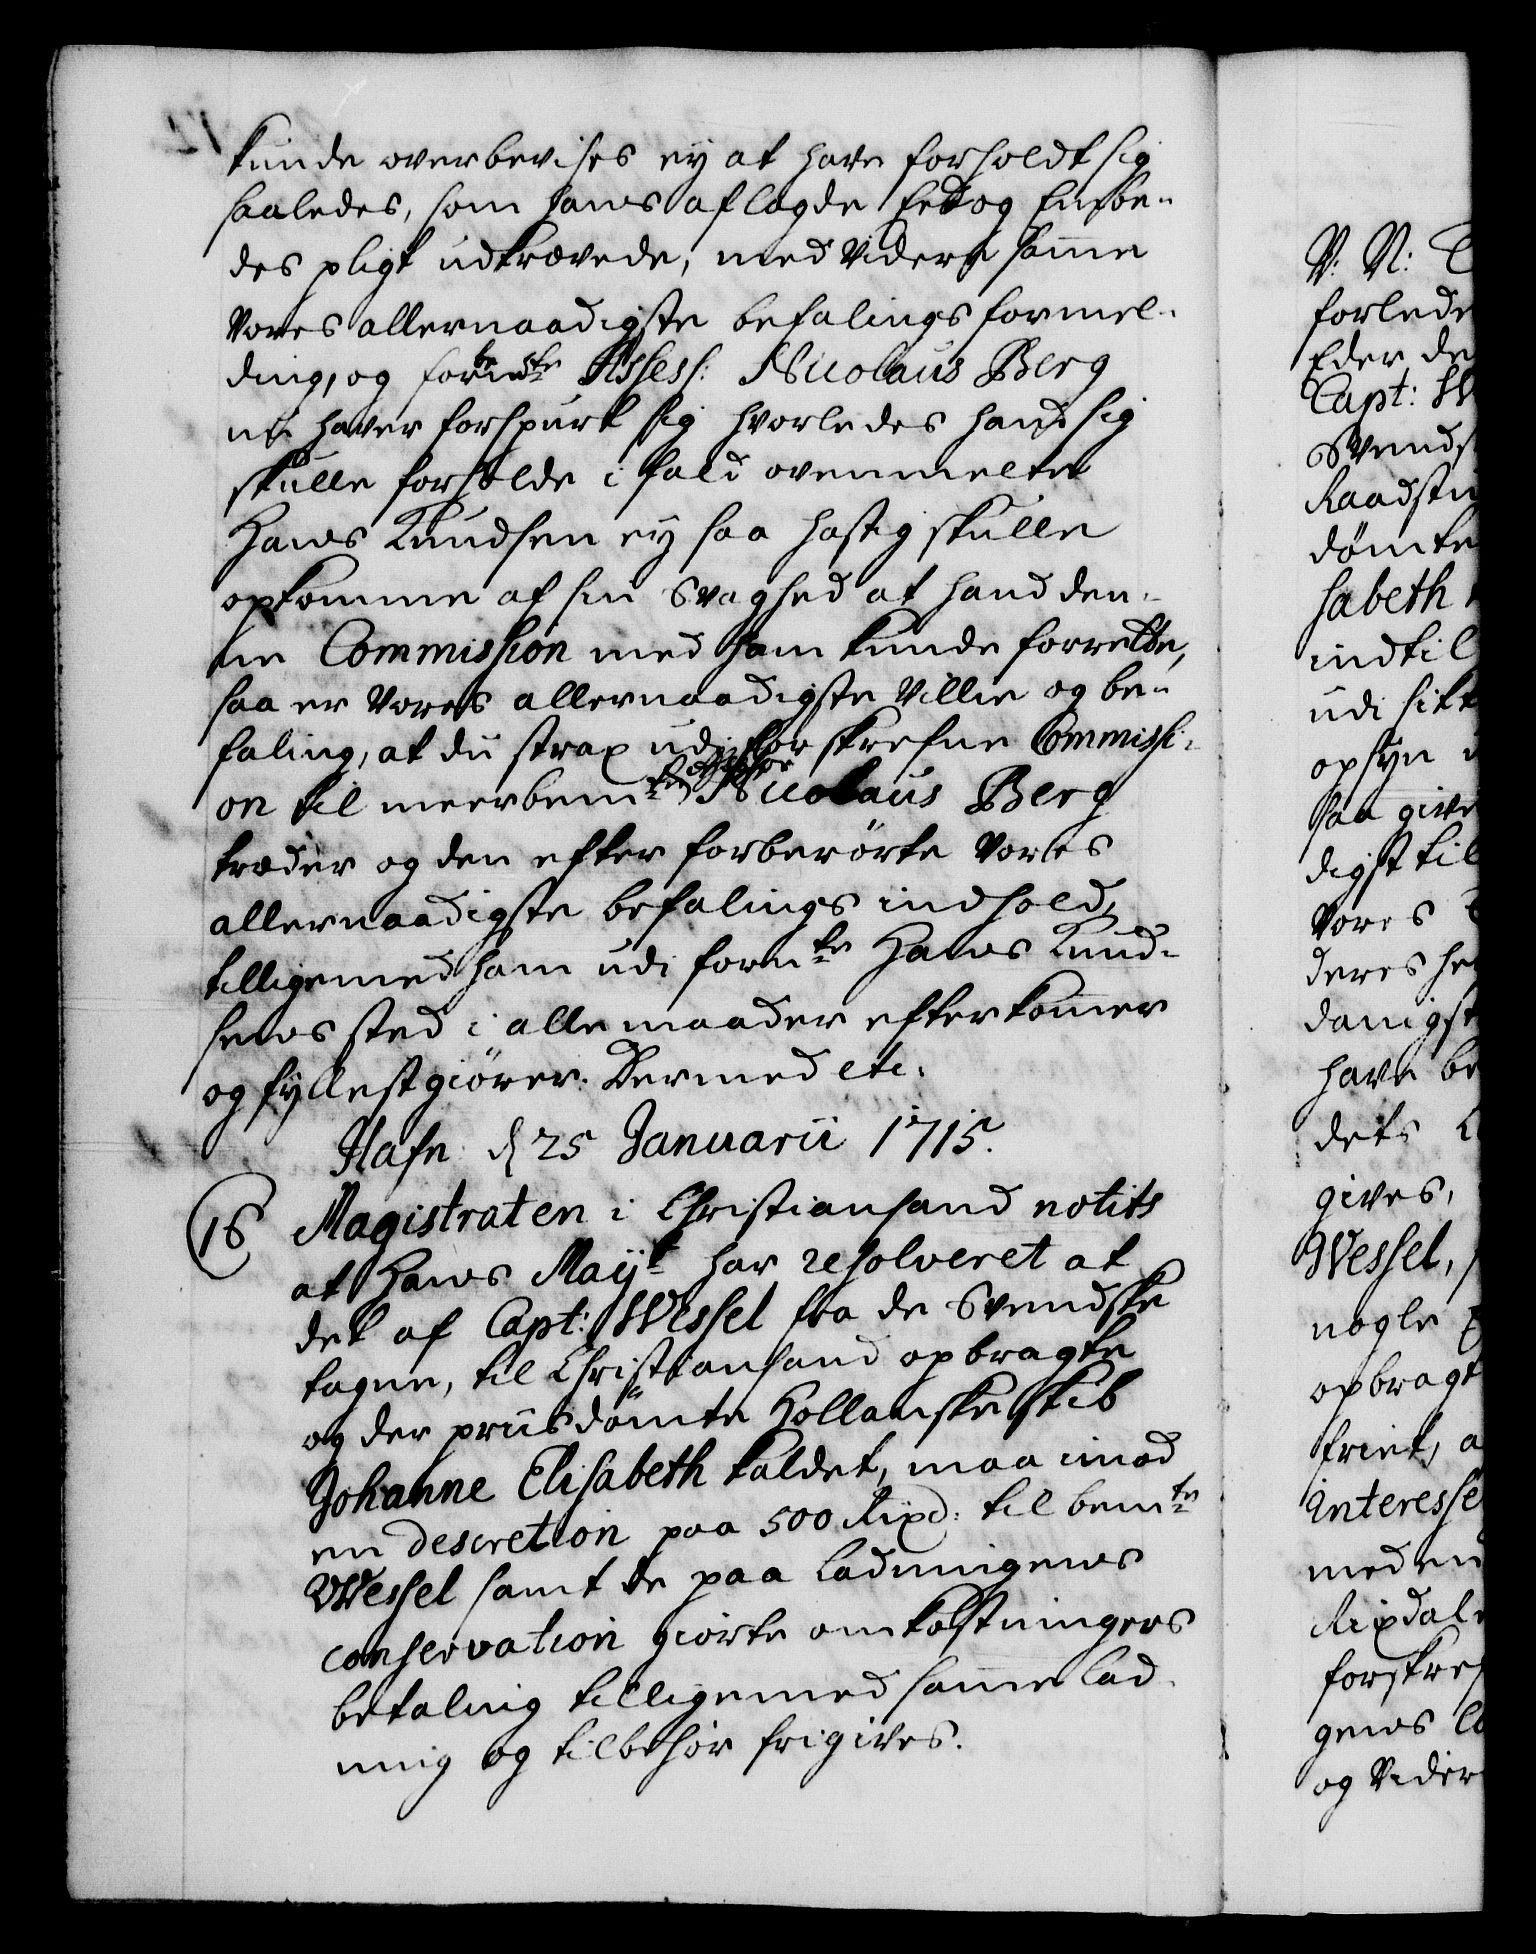 kunde overbevises ey at have forholdt sig
saaledes, som hans aflagde Eed og Embe-
des pligt udkrævede, med Videre samme
Vores allernaadigste befalings formel-
ding, og forbemte Assess: Nicolaus Berg
nu haver forspurt sig hvorledes hand sig
skulle forholde i fald ovenmelte
Hans Knudsen ey saa hastig skulle
opkomme af sin Svaghed at hand den-
ne Commission med ham kunde forrette,
saa er Vores allernaadigste Villie og be-
faling, at du strax udi forskrefne Commissi-
on til meerbemte Assessor Nicolaus Berg
træder og den efter forberörte Vores
allernaadigste befalings indhold,
tilligemed ham udi formte Hans Knud-
sens sted i alle maader efterkommer
og fyllestgiörer. Dermed etc.
Hafn d 25 Januarii 1715.
16 Magistraten i Christiansand notits
at Hans Mayt har resolveret at
det af Capt: Wessel fra de Svendske
tagne, til Christiansand opbragte
og der priisdömte Hollandske skib
Johanne Elisabeth kaldet, maa imod
en descretion paa 500 Rixd: til bemte
Wessel samt de paa Ladningens
conservation giorte omkostningers
betaling tilligemed samme lad-
ning og tilbehör frigives.
V: N:
forlede
Eder de
Capt: W
Svends
Raadstu
dömte
sabeth
indtil
udi sitt
opsyn
saa give
digst til
Vores
deres he
danigst
have be
dets
gives,
Wessel,
nogle
opbragt
friet, a
Interesse
med en
Rixdale
forskref
gens la
og Vider